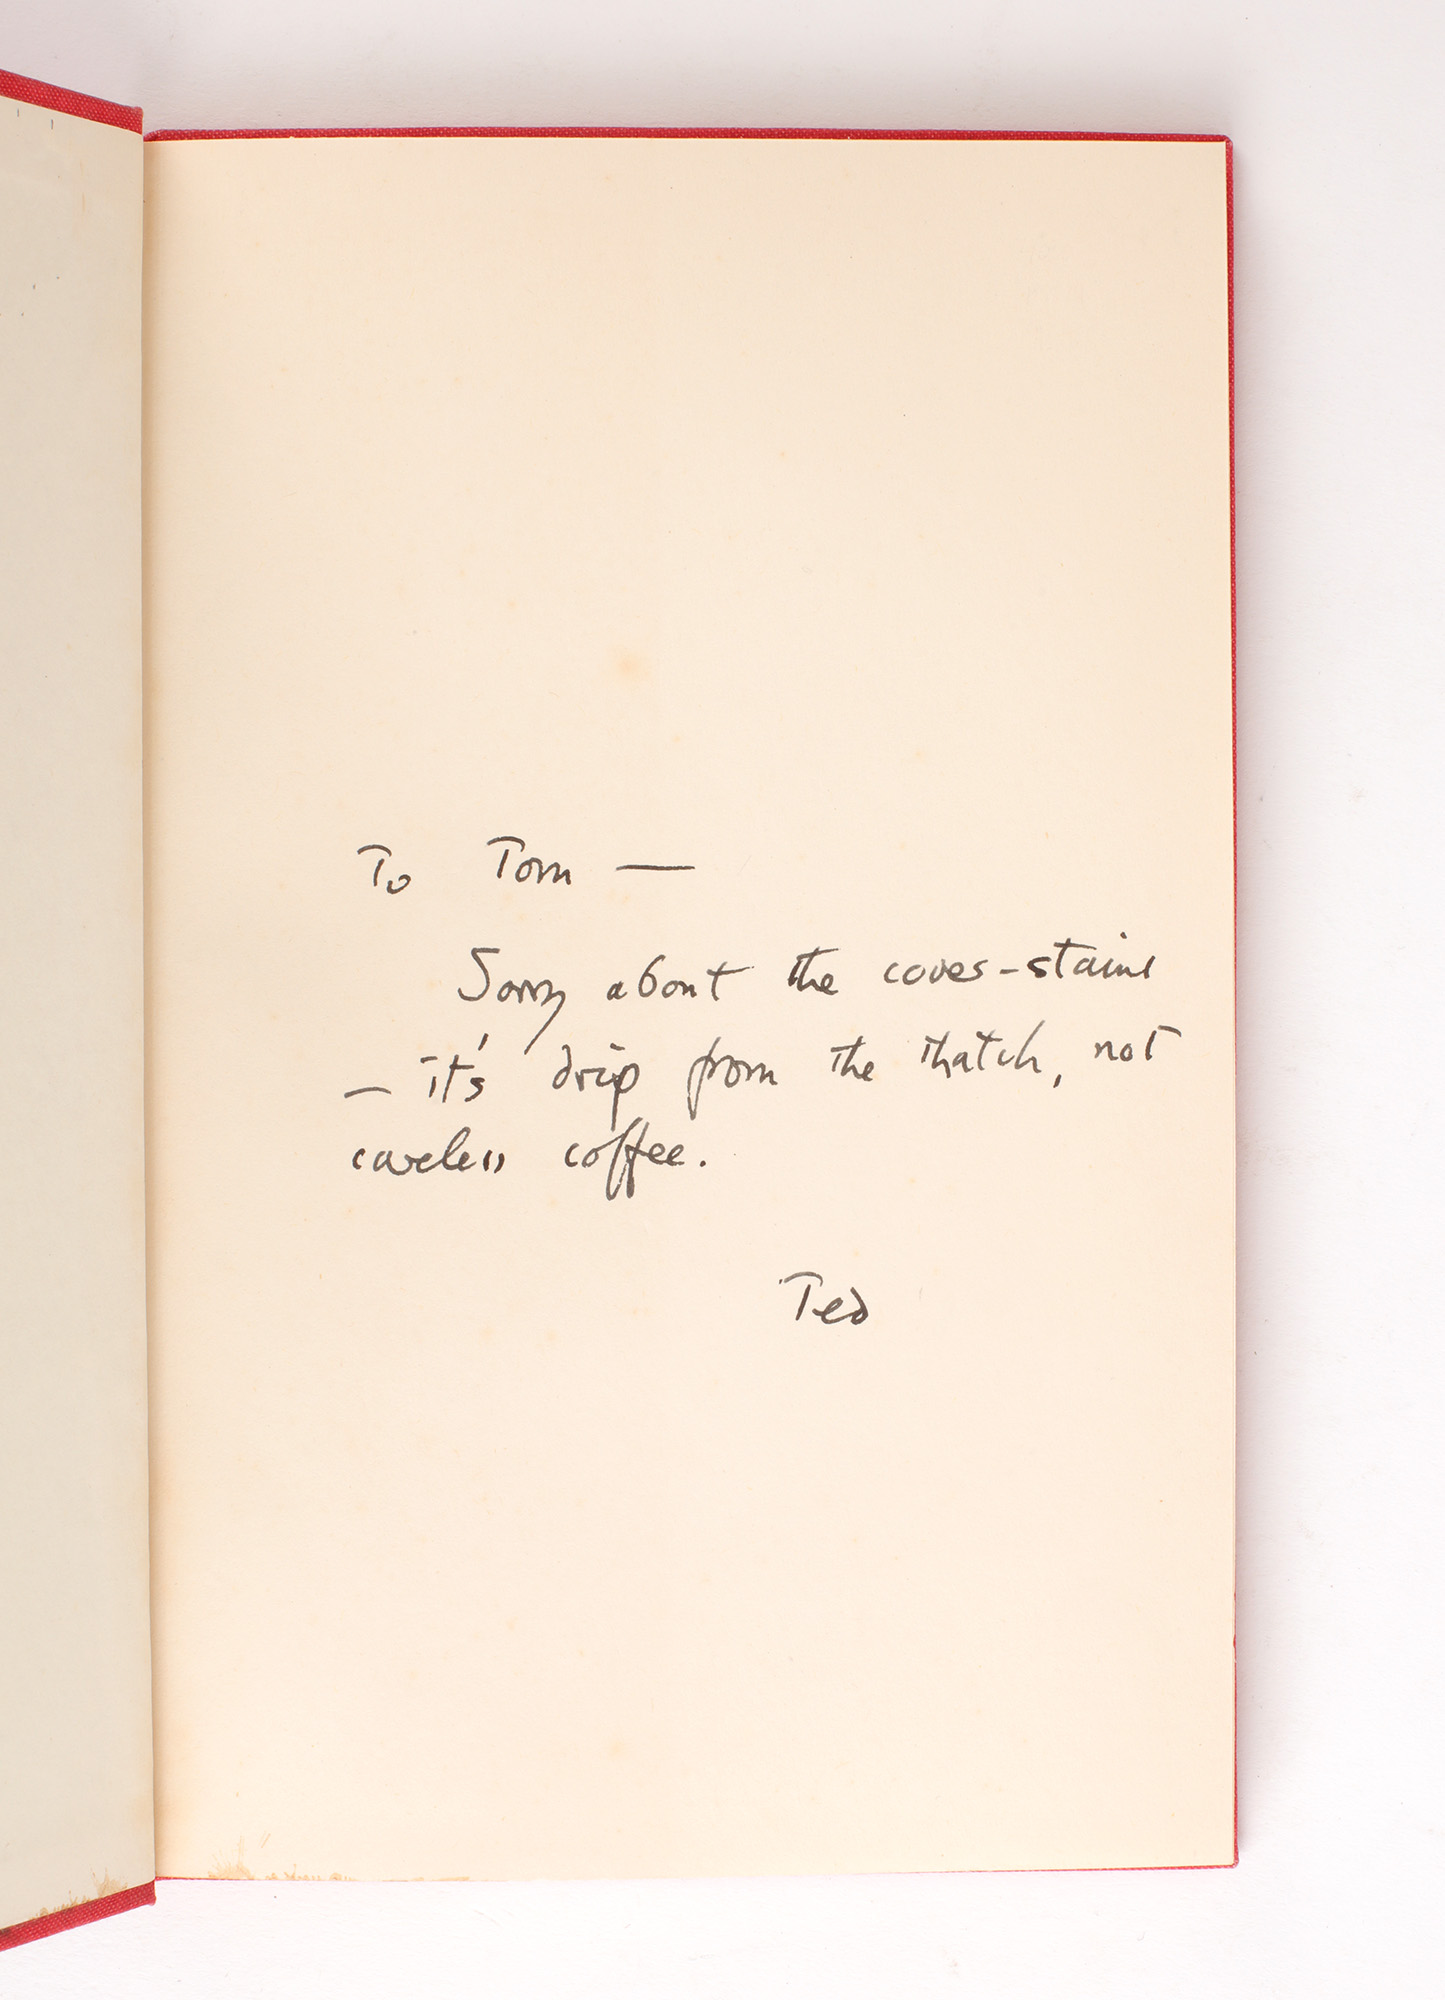 To Tom —
Sorry about the cover-stains
— it's drip from the thatch, not
careless coffee.
Ted